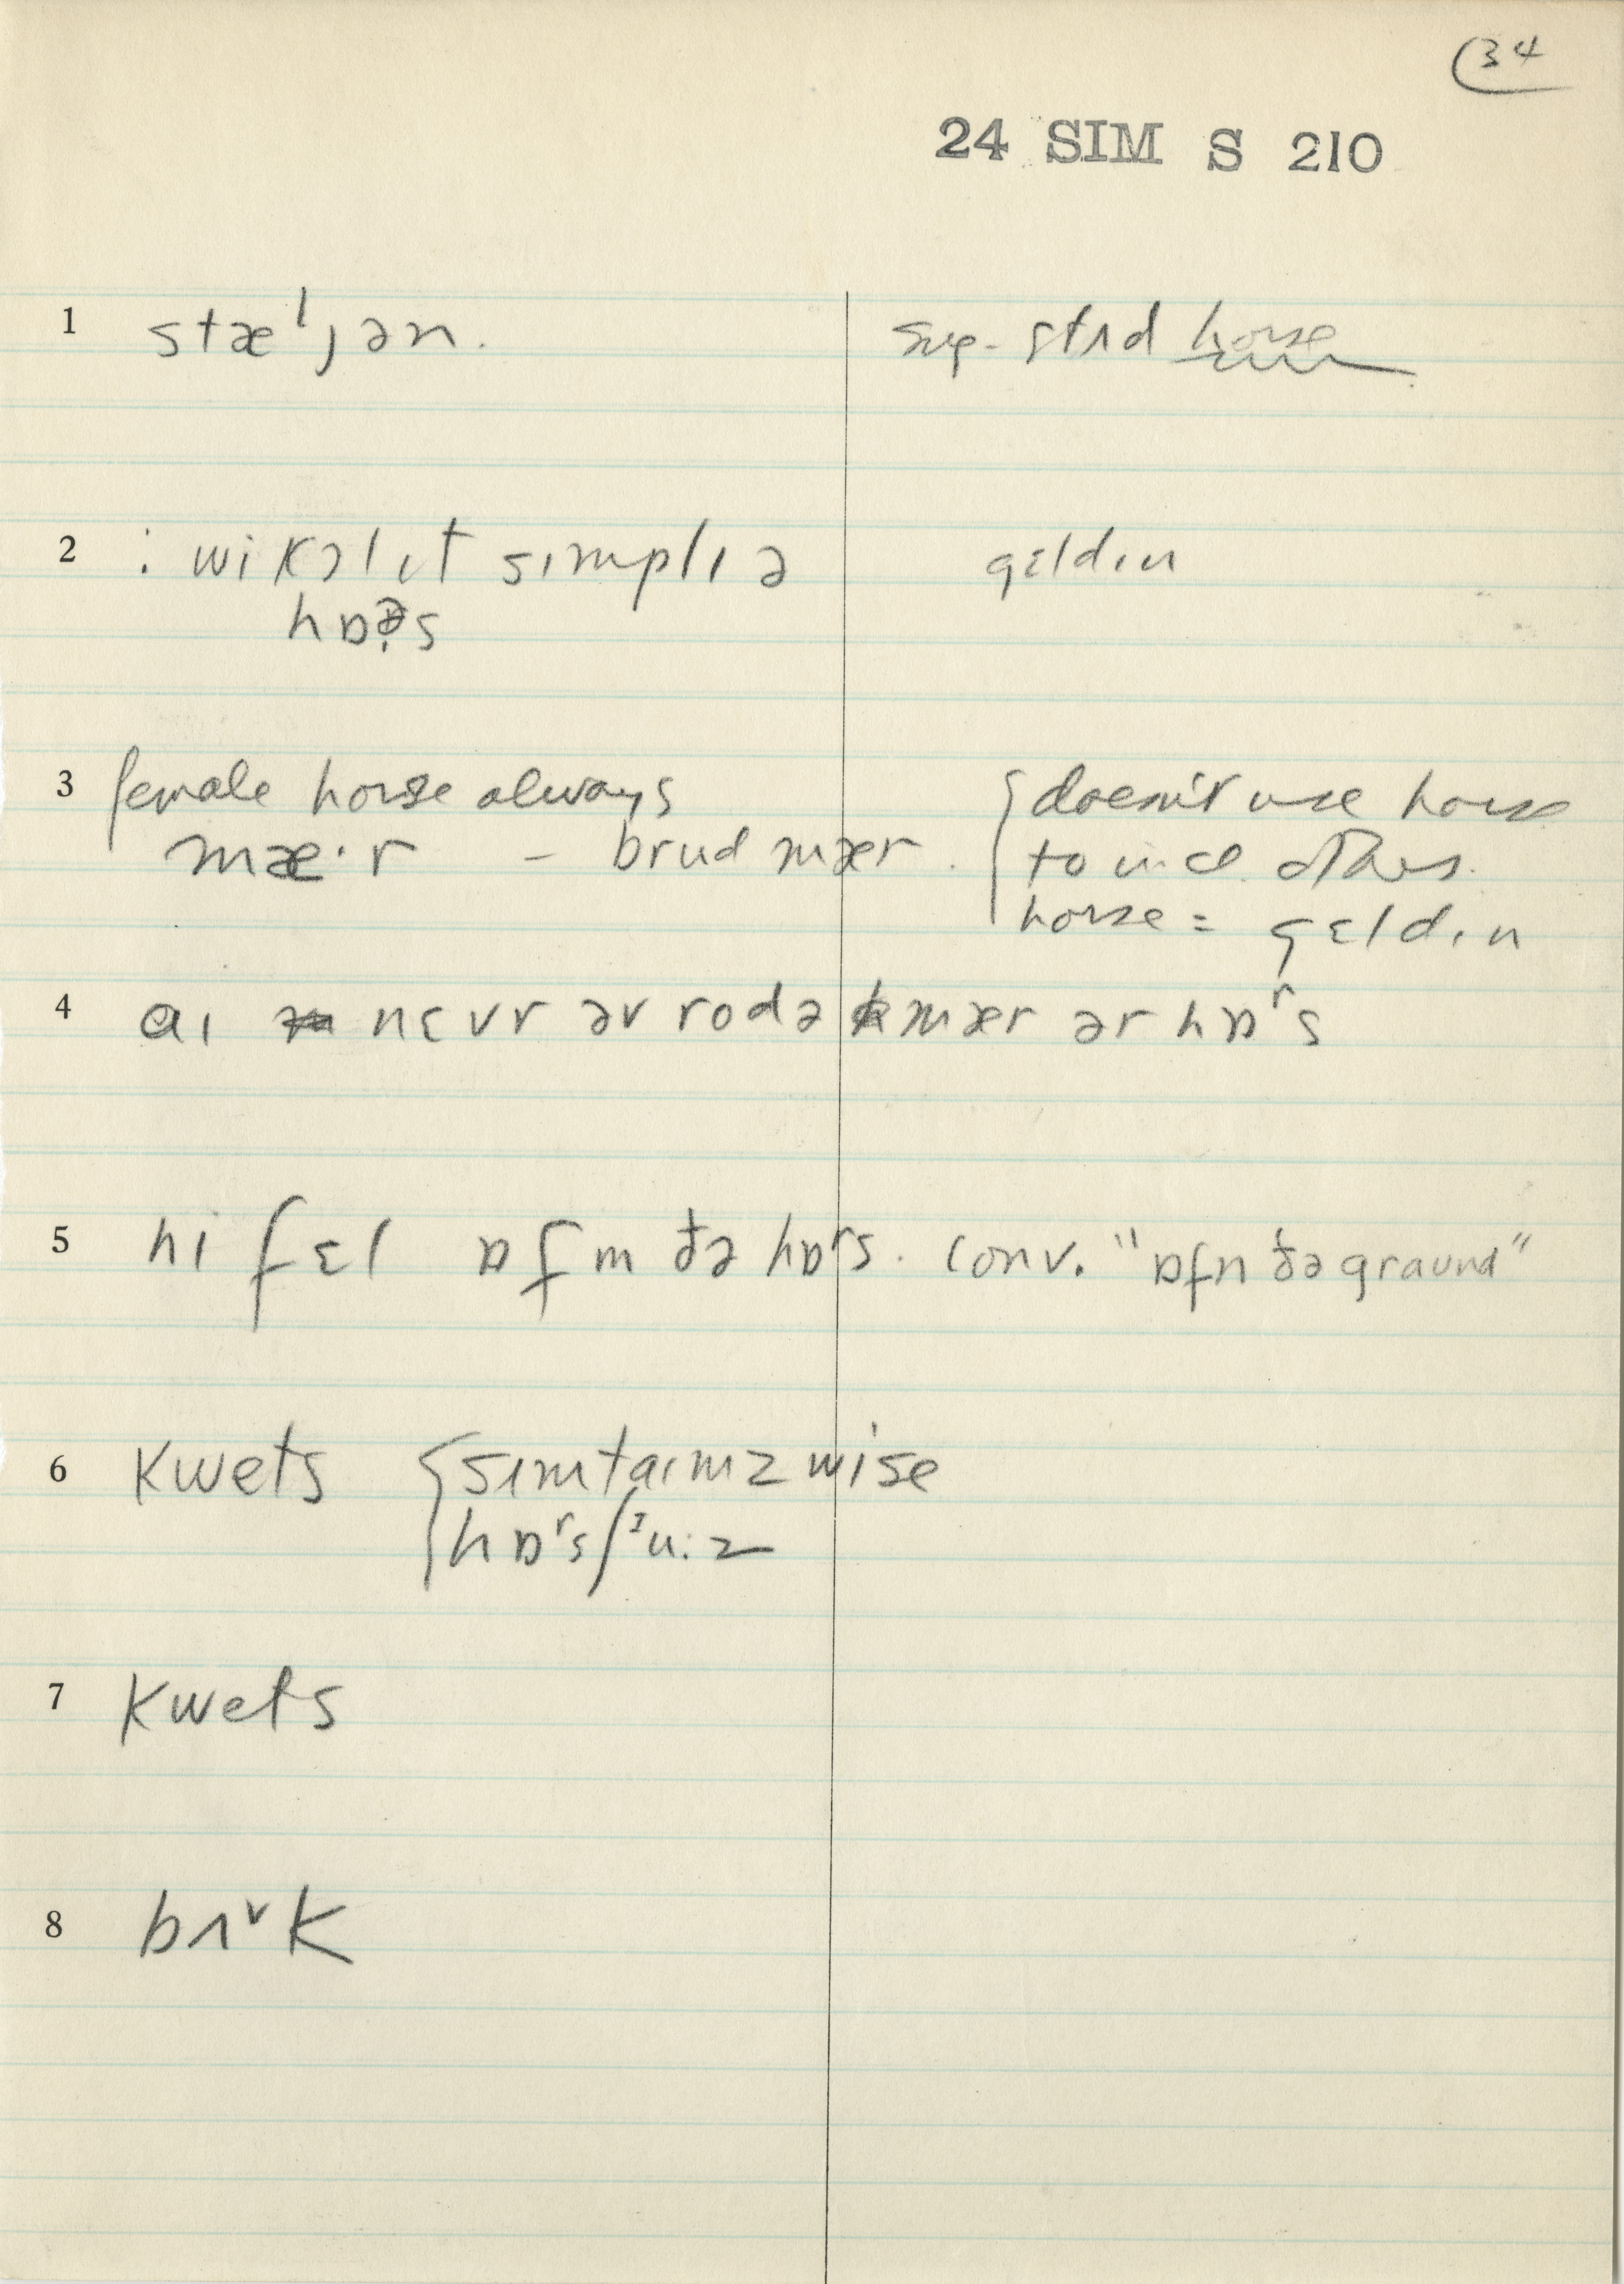 34
24 SIM S 210
1 stælȷən. sug. stʌd horse
2 : wi kɔl ɪt sɪmplɪ ə gɛldɪn
hɒɚs
3 female horse always { doesn't use horse
mæ·r – brud mær. to incl. others.
horse = gɛldɪn
4 aɪ nɛvr əv rod ə mær ər hɒʳs
5 hi fɛl ɒfm ðə hɒʳs. conv. "ɒfn ðə graund"
6 kwets { sʌmtaɪmz wise
hɒʳsʃᶦu:z
7 kwets
8 bʌ˅k